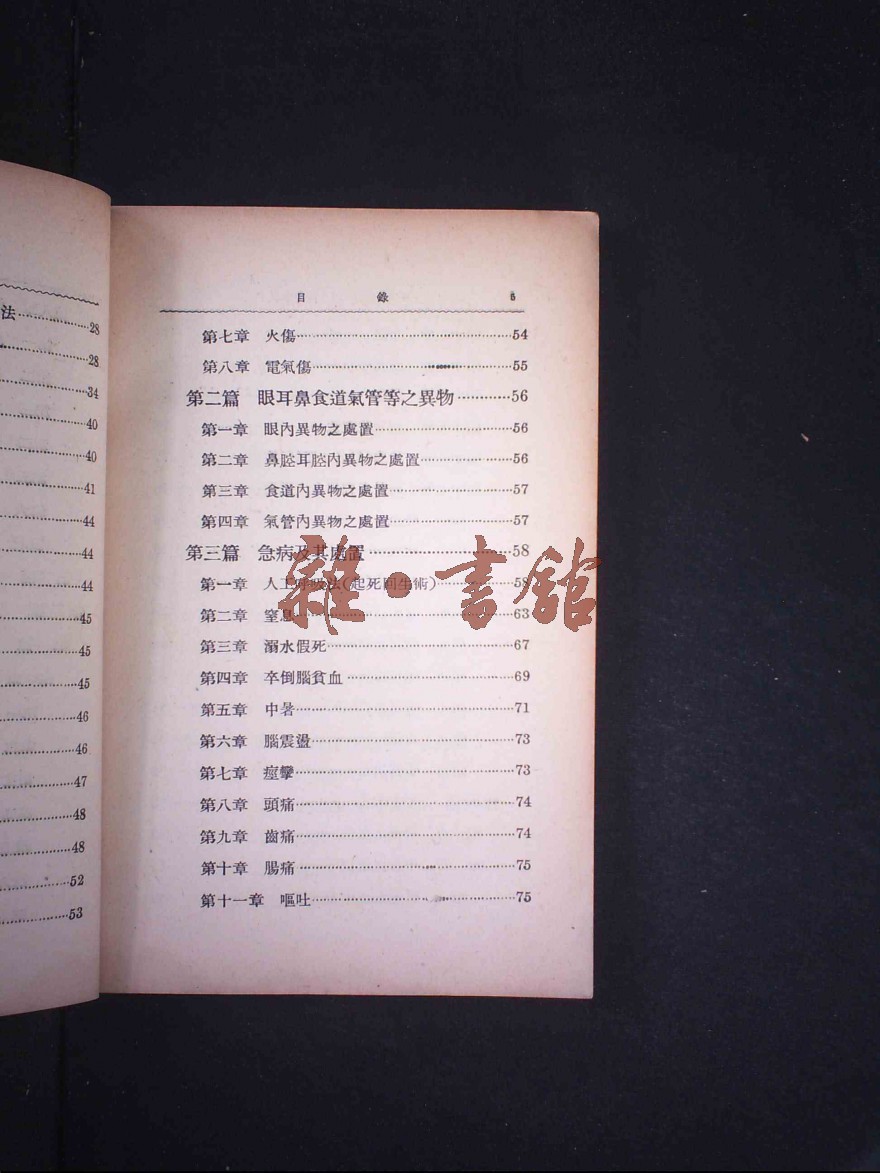 法……28
28
34
40
40
41
44
44
44
45
45
45
46
46
47
48
48
52
53
目錄 5
第七章 火傷……54
第八章 電氣傷……55
第二篇 眼耳鼻食道氣管等之異物……56
第一章 眼內異物之處置……56
第二章 鼻腔耳腔內異物之處置……56
第三章 食道內異物之處置……57
第四章 氣管內異物之處置……57
第三篇 急病及其處置……58
第一章 人工呼吸法(起死回生術)……58
第二章 窒息……63
第三章 溺水假死……67
第四章 卒倒腦貧血……69
第五章 中暑……71
第六章 腦震盪……73
第七章 痙攣……73
第八章 頭痛……74
第九章 齒痛……74
第十章 腸痛……75
第十一章 嘔吐……75
雜·書館